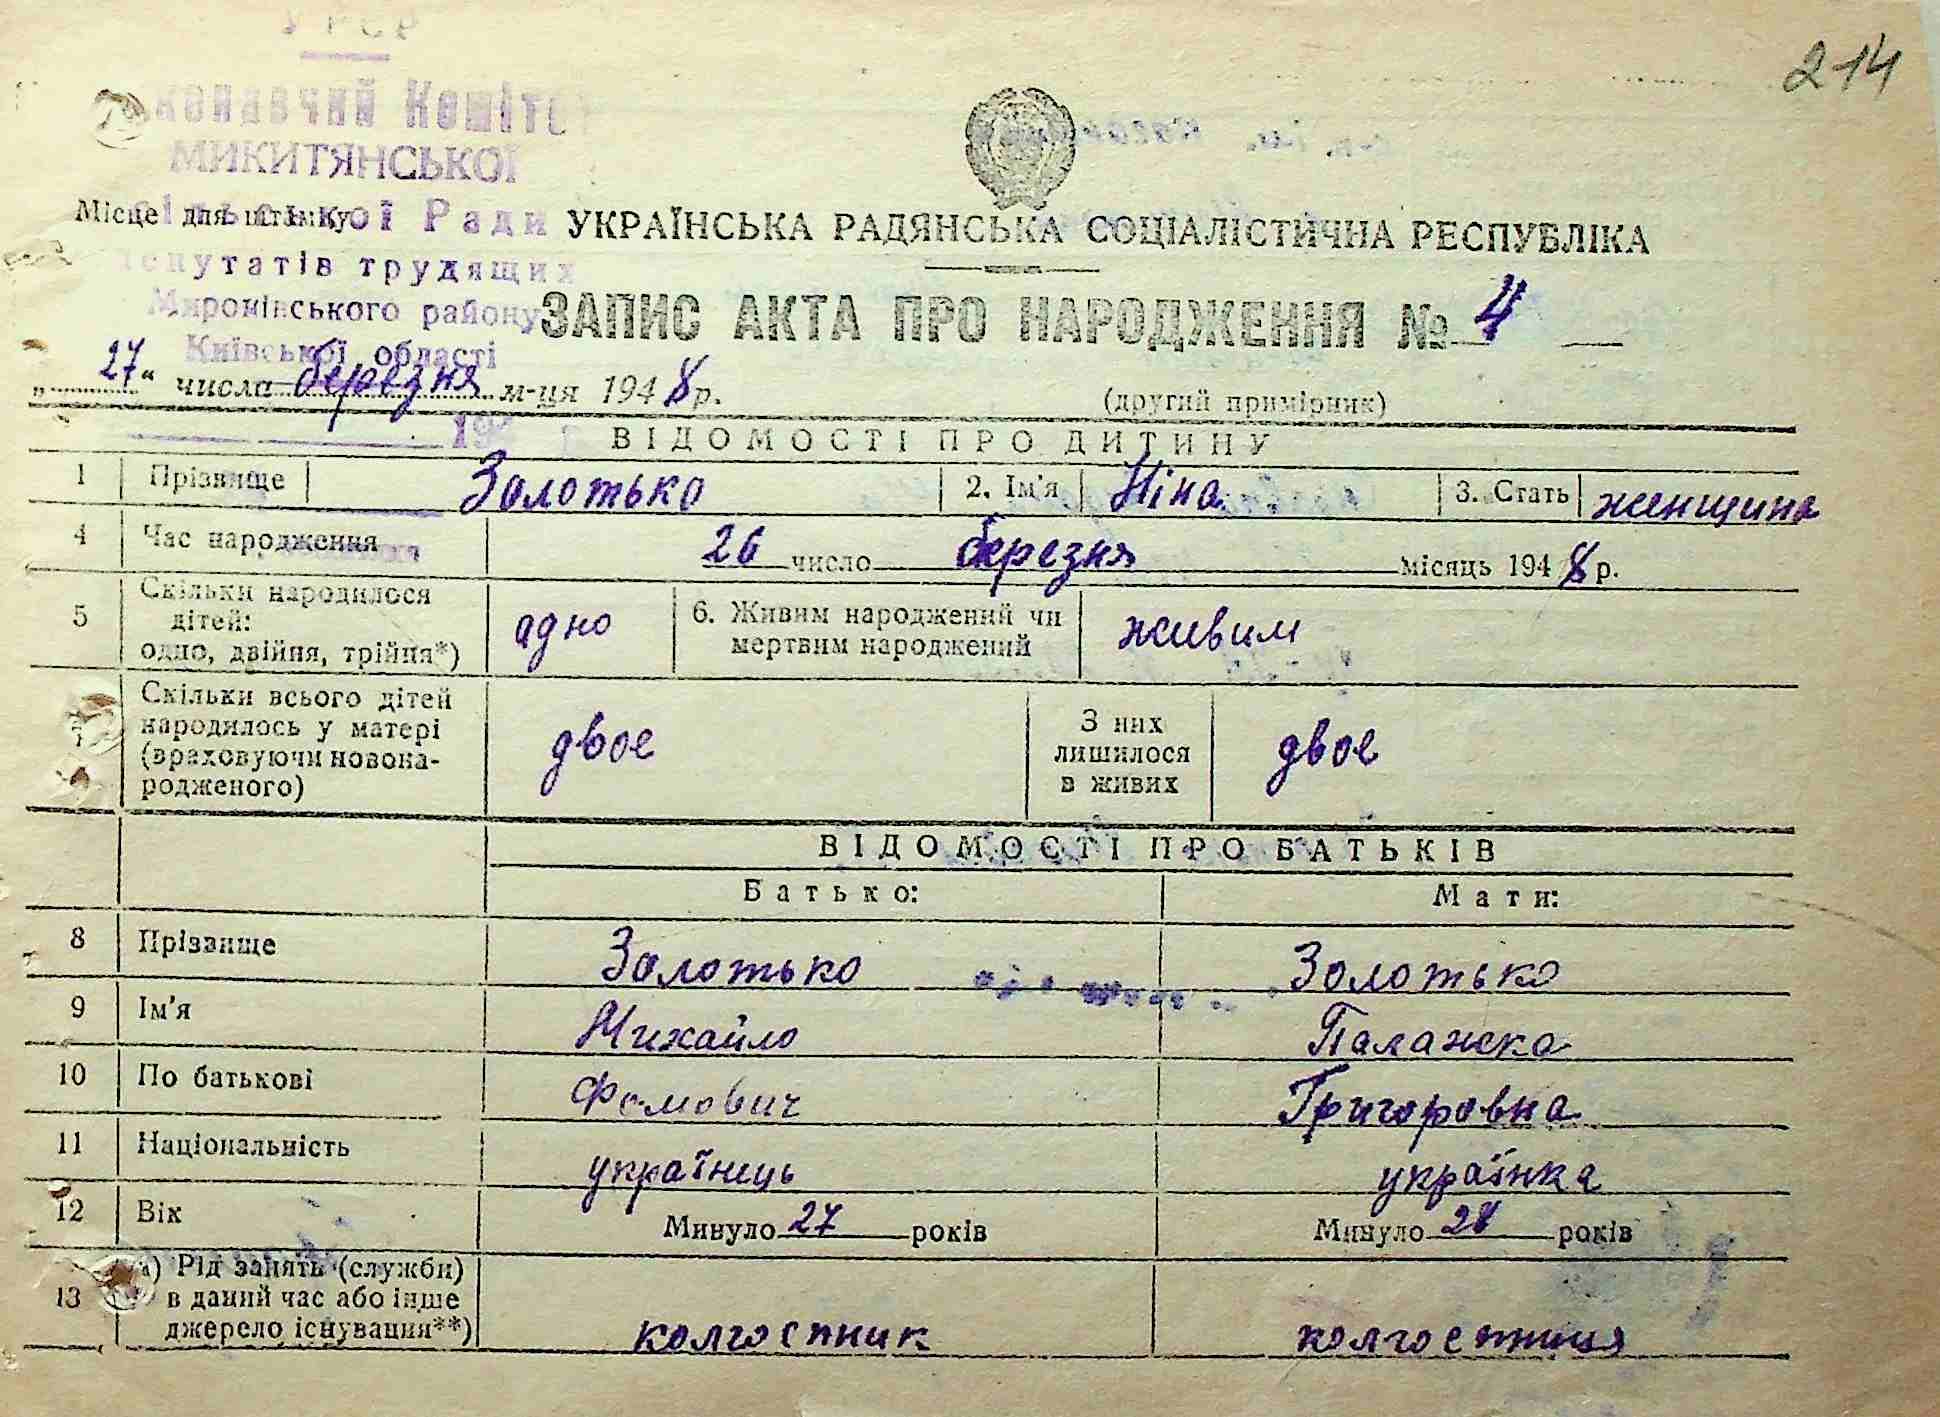 214
УРСР
Виконавчий Комітет
МИКИТЯНСЬКОЇ
сільської Ради
депутатів трудящих
Миронівського району
Київської області
194 р.
Місце для штампу
УКРАЇНСЬКА РАДЯНСЬКА СОЦІАЛІСТИЧНА РЕСПУБЛІКА
ЗАПИС АКТА ПРО НАРОДЖЕННЯ № 4
„27“ числа березня м-ця 1948 р.
(другий примірник)
ВІДОМОСТІ ПРО ДИТИНУ
1 Прізвище Золотько 2. Ім'я Ніна 3. Стать женщина
4 Час народження 26 число березня місяць 1948 р.
5 Скільки народилося дітей: одно, двійня, трійня*) адно 6. Живим народжений чи мертвим народжений живим
Скільки всього дітей народилось у матері (враховуючи новонародженого) двое З них лишилося в живих двое
ВІДОМОСТІ ПРО БАТЬКІВ
Батько: Мати:
8 Прізвище Золотько Золотько
9 Ім'я Михайло Палажка
10 По батькові Фомович Григоровна
11 Національність українець українка
12 Вік Минуло 27 років Минуло 28 років
13 а) Рід занять (служби) в даний час або інше джерело існування**) колгоспник колгоспниця